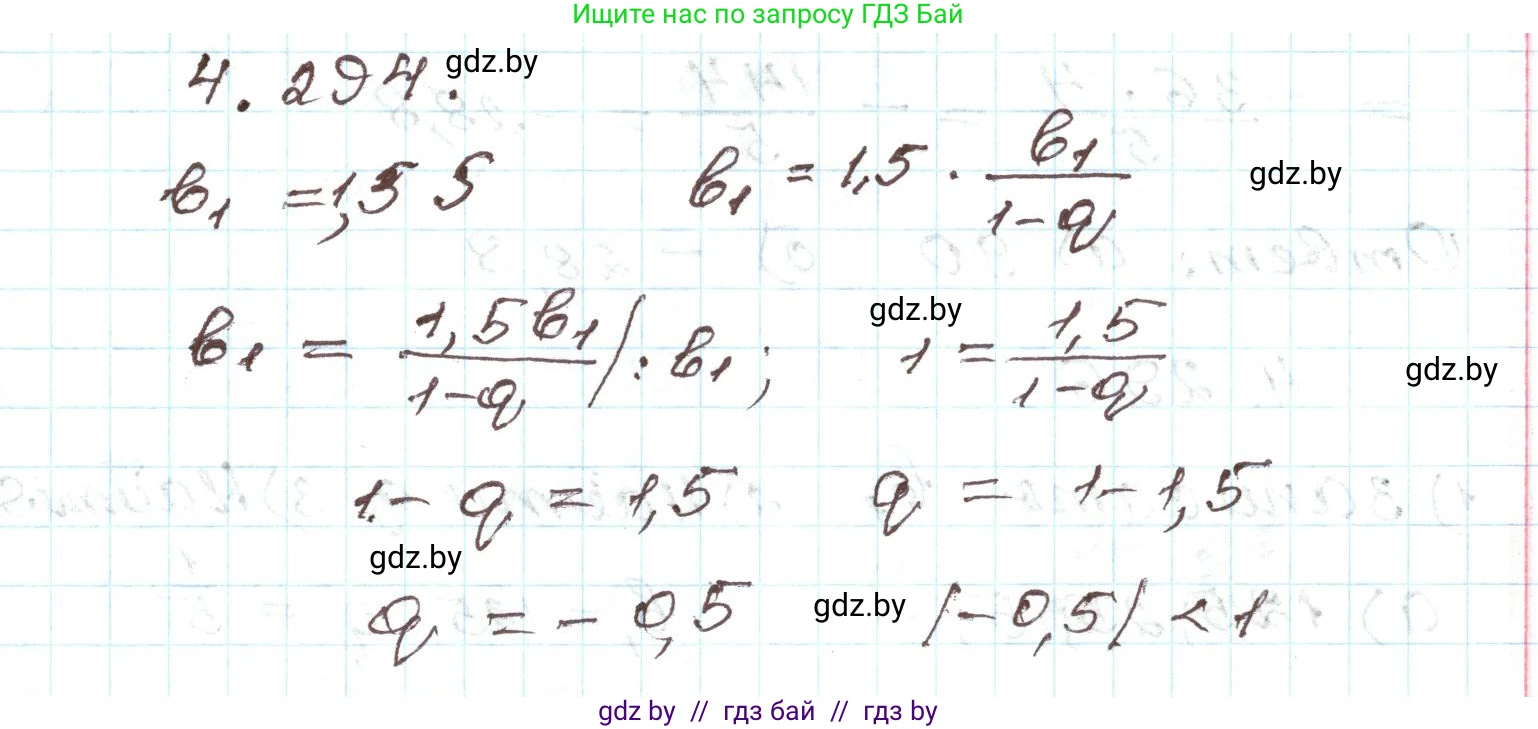 Ищите нас по запросу ГДЗ Бай
4.294. gdz.by
b₁ = 1,5 S b₁ = 1,5 · b₁/(1-q) gdz.by
b₁ = 1,5b₁/(1-q) | : b₁; gdz.by 1 = 1,5/(1-q) gdz.by
1 - q = 1,5 q = 1 - 1,5
gdz.by
q = - 0,5 gdz.by |-0,5| < 1
gdz by // гдз бай // гдз by